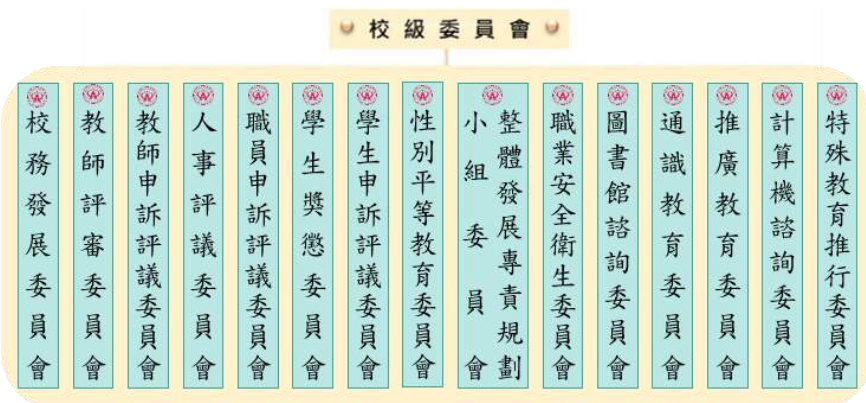 校級委員會
校務發展委員會
教師評審委員會
教師申訴評議委員會
人事評議委員會
職員申訴評議委員會
學生獎懲委員會
學生申訴評議委員會
性別平等教育委員會
整體發展專責規劃
小組委員會
職業安全衛生委員會
圖書館諮詢委員會
通識教育委員會
推廣教育委員會
計算機諮詢委員會
特殊教育推行委員會